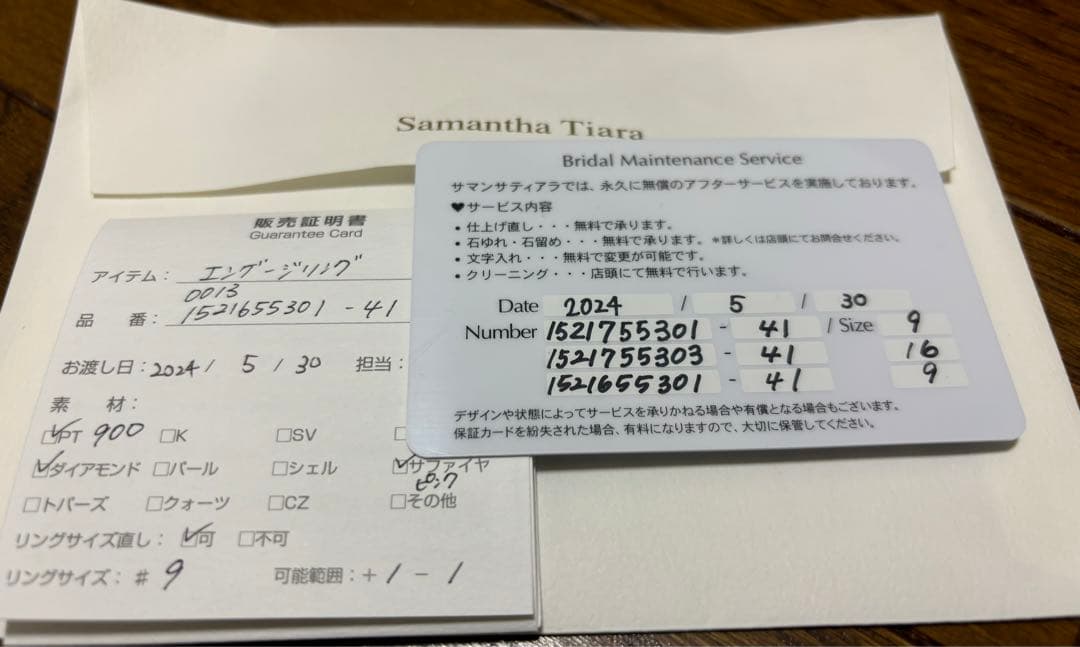 Samantha Tiara
販売証明書
Guarantee Card
アイテム: エンゲージリング
0013
品 番: 1521655301 - 41
お渡し日: 2024 / 5 / 30 担当:
素 材:
☑PT 900 □K □SV □
☑ダイアモンド □パール □シェル ☑サファイヤ
ピンク
□トパーズ □クォーツ □CZ □その他
リングサイズ直し: ☑可 □不可
リングサイズ: # 9 可能範囲: + 1 - 1
Bridal Maintenance Service
サマンサティアラでは、永久に無償のアフターサービスを実施しております。
♥サービス内容
• 仕上げ直し・・・無料で承ります。
• 石ゆれ・石留め・・・無料で承ります。 *詳しくは店頭にてお問合せください。
• 文字入れ・・・無料で変更が可能です。
• クリーニング・・・店頭にて無料で行います。
Date 2024 / 5 / 30
Number 1521755301 - 41 / Size 9
1521755303 - 41 16
1521655301 - 41 9
デザインや状態によってサービスを承りかねる場合や有償となる場合もございます。
保証カードを紛失された場合、有料になりますので、大切に保管してください。